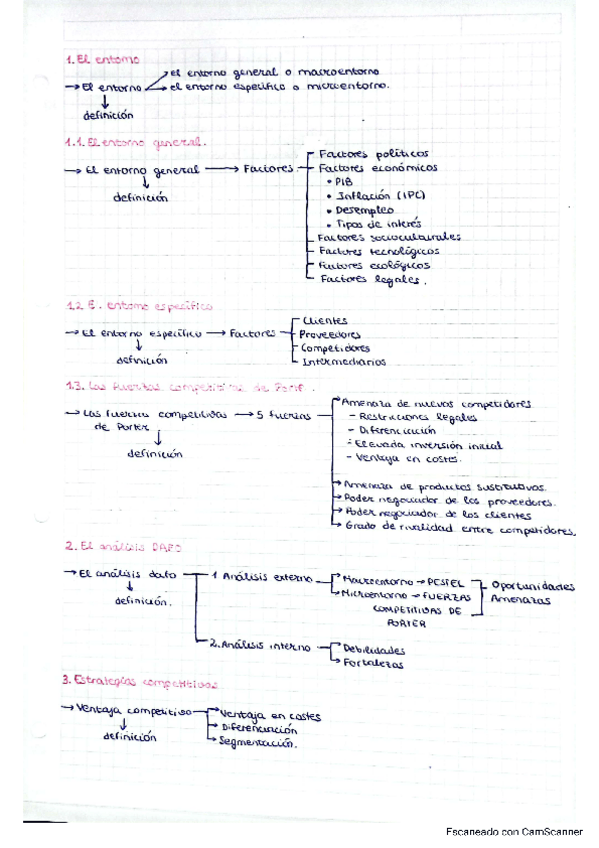 1. El entorno
el entorno general o macroentorno
→ El entorno → el entorno específico o microentorno.
definición
1.1. El entorno general.
→ El entorno general → Factores
definición
Factores políticos
Factores económicos
• PIB
• Inflación (IPC)
• Desempleo
• Tipos de interés
Factores socioculturales
Factores tecnológicos
Factores ecológicos
Factores legales.
1.2 E. entorno específico
→ El entorno específico → Factores
definición
Clientes
Proveedores
Competidores
Intermediarios
1.3. Las fuerzas competitivas de Porter.
→ Las fuerzas competitivas → 5 fuerzas
de Porter
definición
Amenaza de nuevos competidores
- Restricciones legales
- Diferenciación
- Elevada inversión inicial
- Ventaja en costes.
Amenaza de productos sustitutivos.
Poder negociador de los proveedores.
Poder negociador de los clientes
Grado de rivalidad entre competidores.
2. El análisis DAFO
→ El análisis dafo
definición.
1 Análisis externo
Macroentorno → PESTEL
Microentorno → FUERZAS
COMPETITIVAS DE
PORTER
Oportunidades
Amenazas
2. Análisis interno
Debilidades
Fortalezas
3. Estrategias competitivas
→ Ventaja competitiva
definición
Ventaja en costes
Diferenciación
Segmentación.
Escaneado con CamScanner